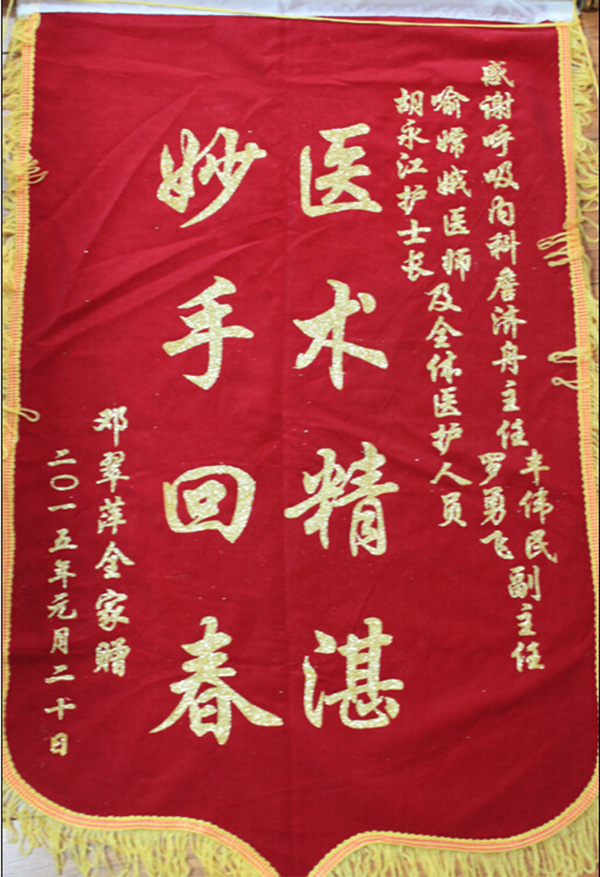 感谢呼吸内科詹济舟主任丰伟民罗勇飞副主任
喻嫦娥医师及全体医护人员
胡永江护士长
医术精湛
妙手回春
邓翠萍全家赠
二〇一五年元月二十日